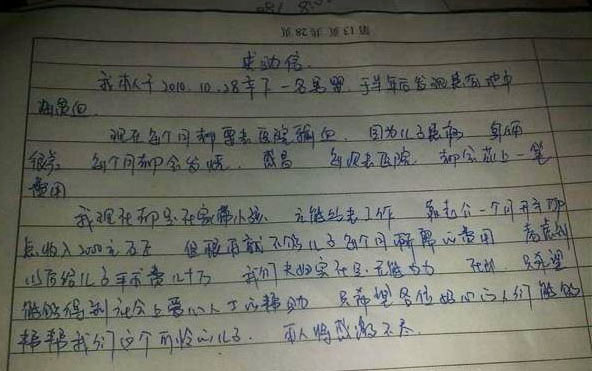 第13页 共28页
求助信
我本人于2010.10.28年下一名男婴，于半年后发现患有地中
海贫血
现在每个月都要去医院输血 因为儿子患病 身体
每个月都会发烧 感冒 每次去医院 都会花上一笔
费用
我现在都是在家带小孩 无能出去工作 靠老公一个月
收入2000元左右 但根本就不够儿子每个月所需的费用 考虑到
以后给儿子手术费几十万 我们夫妇实在是无能为力 在此 只希望
能够得到社会上爱心人士的帮助 只希望各位好心的人们能够
帮帮我们这个可怜的儿子 本人将感激不尽.